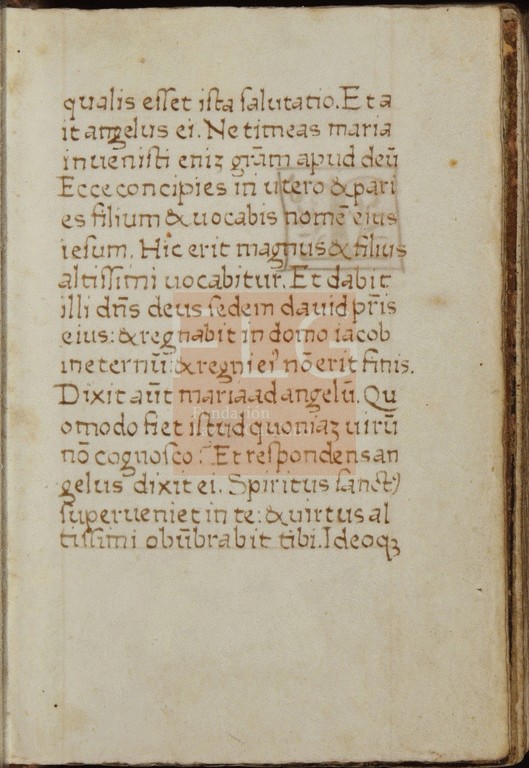 qualis esset ista salutatio. Et a
it angelus ei. Ne timeas maria
inuenisti eniz grãm apud deũ
Ecce concipies in utero & pari
es filium & uocabis nomẽ eius
iesum. Hic erit magnus & filius
altissimi uocabitur. Et dabit
illi dñs deus sedem dauid pr̃is
eius: & regnabit in domo iacob
in eternũ: & regni ei⁹ nõ erit finis.
Dixit aũt maria ad angelũ. Qu
omodo fiet istud quoniaz uirũ
nõ cognosco? Et respondens an
gelus dixit ei. Spiritus sanct⁹
superueniet in te: & uirtus al
tissimi obũbrabit tibi. Ideoqꝫ
FLG
Fundación